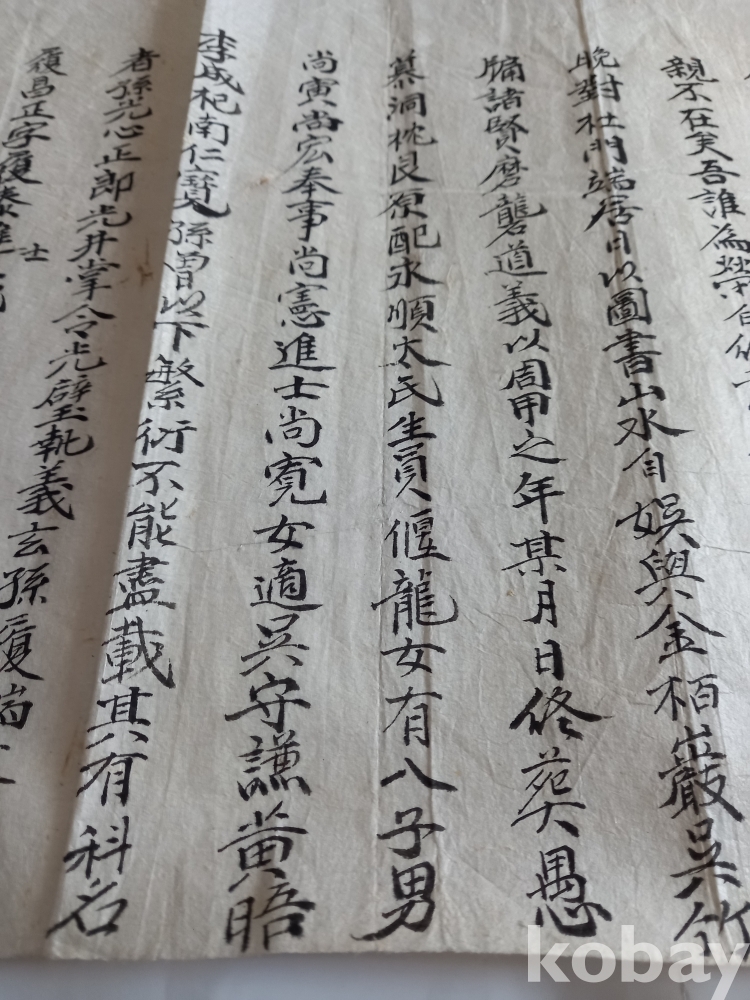 親不在矣吾誰為榮自
晩對杜門端居日以圖書山水自娛與金栢巖吳竹
牖諸賢磨礱道義以周甲之年某月日終葬愚
慕洞枕艮原配永順太氏生員偃龍女有八子男
尚寅尚宏奉事尚憲進士尚寬女適吳守謙黄晤
李成杞南仁寶見孫曾以下繁衍不能盡載其有科名
者孫光心正郎光井掌令光璧執義玄孫履瑞
履昌正字履 進士
kobay